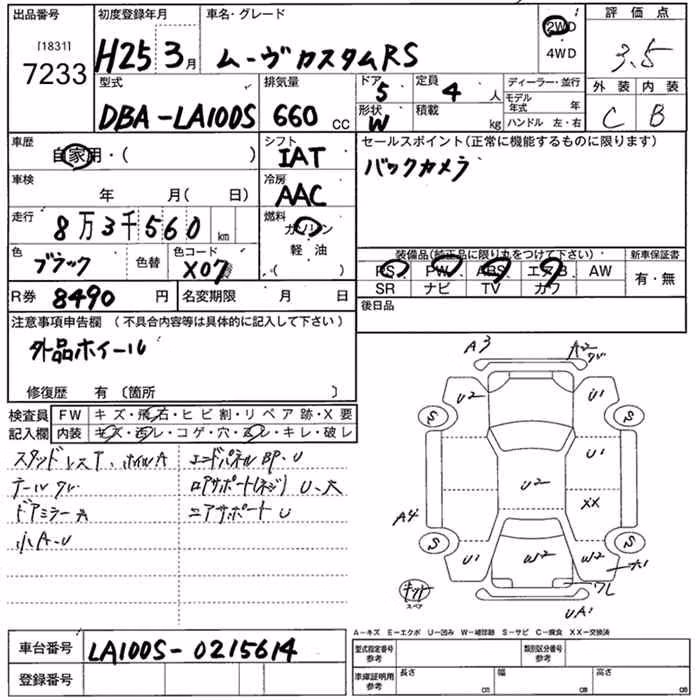 出品番号 初度登録年月 車名・グレード 評価点
[1831] 7233 H25 3月 ムーヴカスタムRS 2WD 4WD 3.5
型式 排気量 ドア 5 定員 4人 ディーラー・並行 外装 内装
DBA-LA100S 660 CC 形状 W 積載 kg モデル年式 年 ハンドル 左・右 C B
車歴 シフト セールスポイント(正常に機能するものに限ります)
自家用・( ) IAT バックカメラ
車検 年 月( 日) 冷房 AAC
走行 8万3千560 km 燃料 ガソリン
色 ブラック 色替 色コード X07 軽油 ( )
装備品(純正品に限り丸をつけて下さい) 新車保証書
PS PW ABS エアB AW 有・無
SR ナビ TV カワ
R券 8490 円 名変期限 月 日 後日品
注意事項申告欄 (不具合内容等は具体的に記入して下さい)
外品ホイール
修復歴 有 〔箇所 〕
検査員 FW キズ・飛石・ヒビ割・リペア跡・X要
記入欄 内装 キズ・汚レ・コゲ・穴・ヌレ・キレ・破レ
スタッドレスT、ホイルA エンドパネルBP.U
テールワレ ロアサポート(ネジ)U、大
ドアミラーA エアサポートU
小A.U
A3 A2 ワレ
U2 U1
S S
U1
U2 XX
A4
S S
U1 W2 W2 A1
キット スペア ワレ
UA1
A-キズ E-エクボ U-凹み W-補修跡 S-サビ C-腐食 XX-交換済
車台番号 LA100S-0215614 型式指定番号 参考 類別区分番号 参考
登録番号 車庫証明用 参考 長さ cm 幅 cm 高さ cm